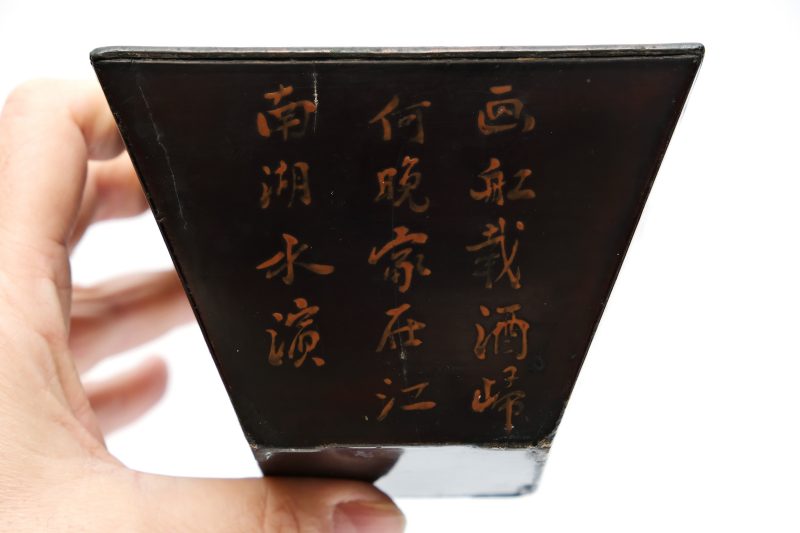 画舡载酒歸
何晚家在江
南湖水濱